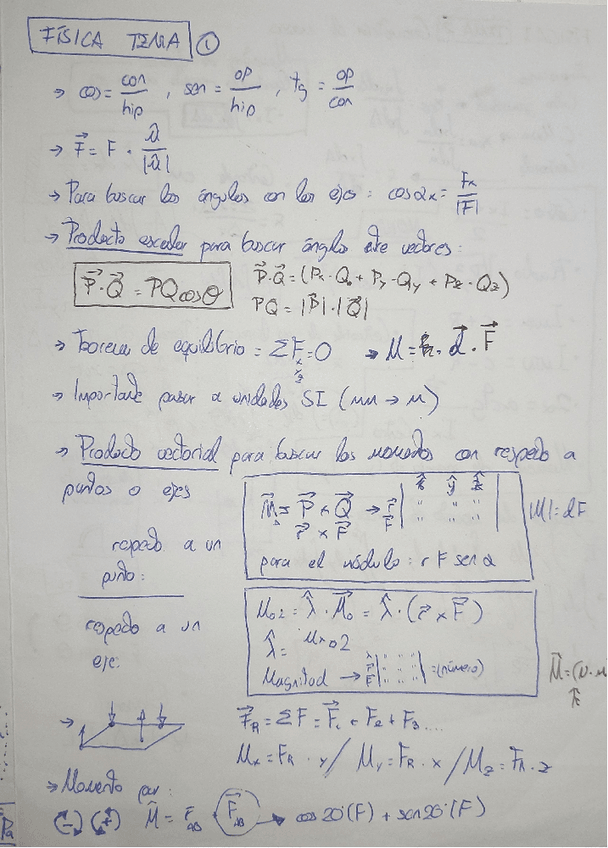 FÍSICA TEMA 1
→ cos = con/hip , sen = op/hip , tg = op/con
→ F⃗ = F · u⃗/|u⃗|
→ Para buscar los ángulos con los ejes : cos αx = Fx/|F|
→ Producto escalar para buscar ángulo entre vectores:
P⃗·Q⃗ = PQ cosθ
P⃗·Q⃗ = (Px·Qx + Py·Qy + Pz·Qz)
PQ = |P⃗|·|Q⃗|
→ Teorema de equilibrio = ΣF = 0 → M = d⃗ · F⃗
x
y
z
→ Importante pasar a unidades SI (mm → m)
→ Producto vectorial para buscar los momentos con respecto a
puntos o ejes
respecto a un
punto:
M⃗ = P⃗ × Q⃗ → r⃗ F⃗ | x̂ ŷ ẑ |
r⃗ × F⃗
|M| = dF
para el módulo : r F sen α
respecto a un
eje:
= λ̂ · M⃗o = λ̂ · (r⃗ × F⃗)
λ̂ =
Magnitud → = (número)
→ F⃗R = ΣF = F⃗1 + F2 + F3 ...
Mx = FR · y / My = FR · x / Mz = FR · z
→ Momento par:
(-) (+) M⃗ = → cos 20·(F) + sen 20·(F)